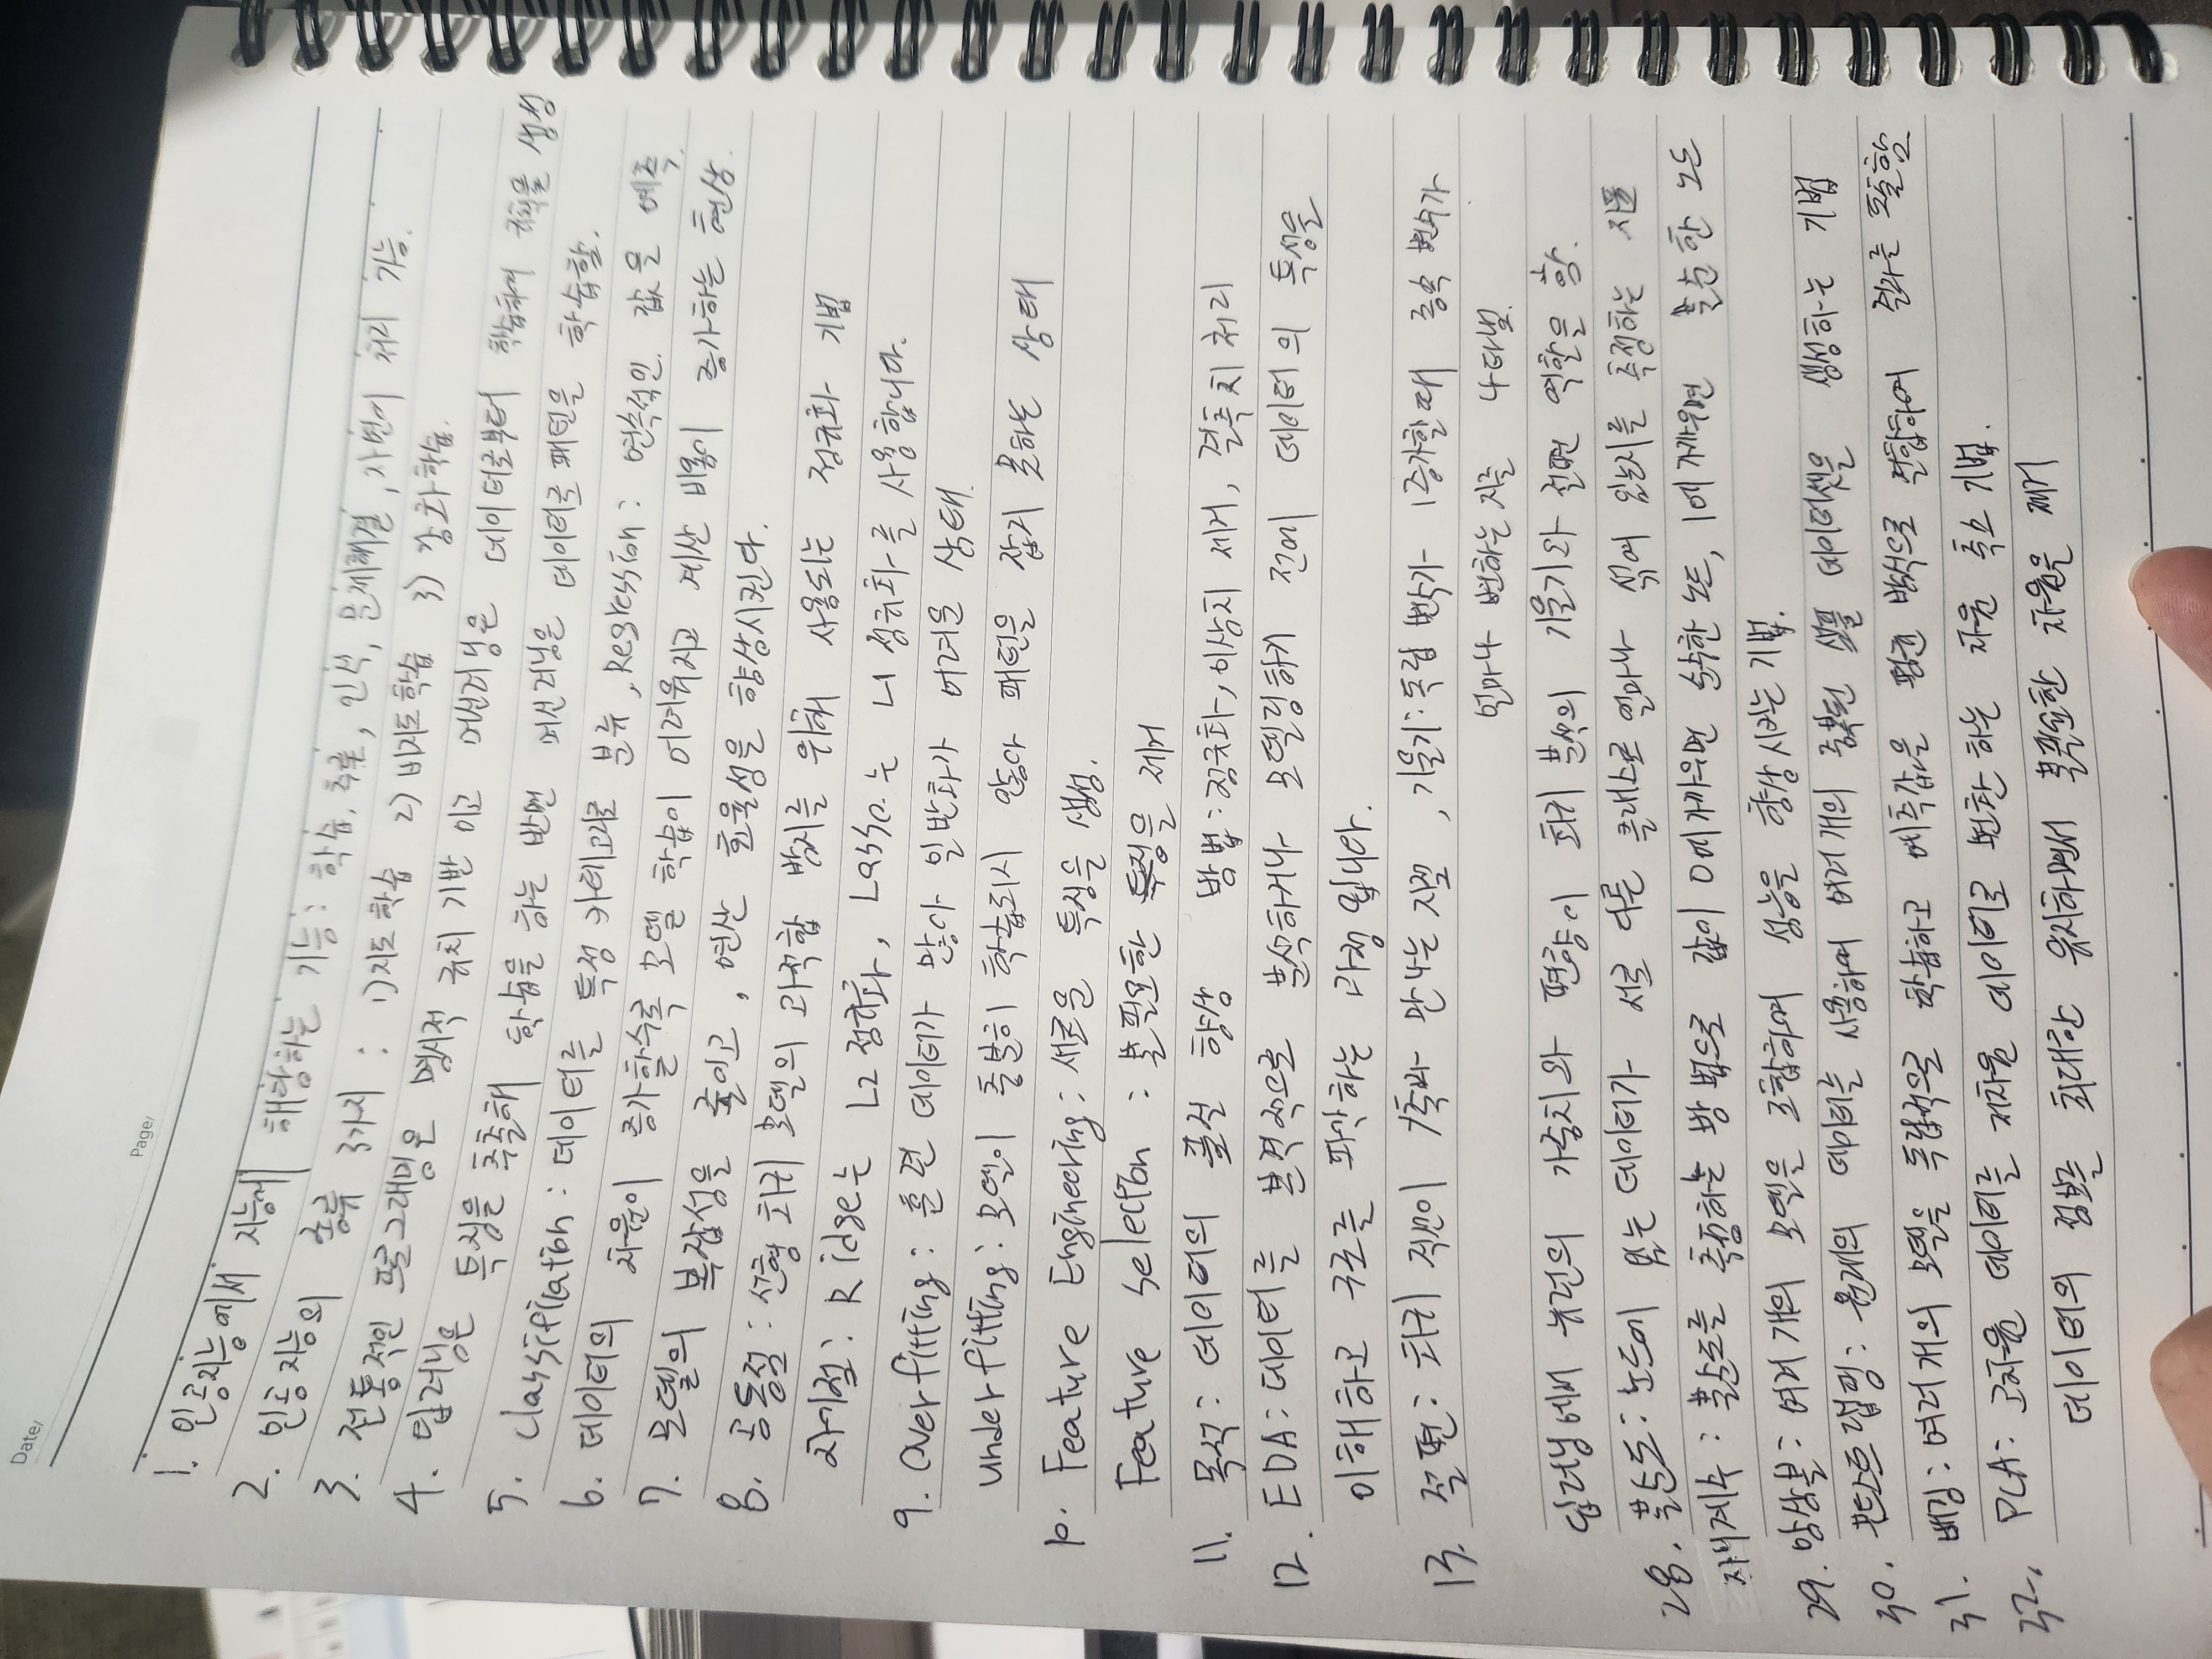 Date/
Page/
1. 인공지능에서 지능에 해당하는 기능: 학습, 추론, 인식, 문제해결, 자연어 처리 가능.
2. 인공지능의 종류 3가지 : 1)지도학습 2) 비지도학습 3) 강화학습.
3. 전통적인 프로그래밍은 명시적 규칙 기반 이고 머신러닝은 데이터로부터 학습하여 규칙을 생성
4. 딥러닝은 특징을 추출해 학습을 하는 반면 머신러닝은 데이터로 패턴을 학습함.
5. Classification : 데이터를 특정 카테고리로 분류, Regression : 연속적인 값을 예측
6. 데이터의 차원이 증가할수록 모델 학습이 어려워지고 계산 비용이 증가하는 현상.
7. 모델의 복잡성을 줄이고, 연산 효율성을 향상시킨다.
8. 공통점 : 선형 회귀 모델의 과적합 방지를 위해 사용되는 정규화 기법
차이점 : Ridge는 L2 정규화, Lasso는 L1 정규화를 사용합니다.
9. Overfitting : 훈련 데이터가 많아 일반화가 어려운 상태.
underfitting : 모델이 충분히 학습되지 않아 패턴을 잡지 못하는 상태
10. Feature Engineering : 새로운 특징을 생성.
Feature selection : 불필요한 특징을 제거
11. 목적 : 데이터의 품질 향상 방법 : 정규화, 이상치 제거, 결측치 처리
12. EDA : 데이터를 본격적으로 분석하거나 모델링하기 전에 데이터의 특성을
이해하고 구조를 파악하는 과정 입니다.
13. 절편 : 회귀 직선이 Y축과 만나는 지점, 기울기 : 독립 변수가 1증가할때 종속 변수가
얼마나 변하는지를 나타냄.
딥러닝에서 뉴런의 가중치와 편향이 회귀 분석의 기울기와 절편 역할을 함.
28. 불순도 : 노드에 있는 데이터가 서로 다른 클래스로 얼마나 섞여 있는지를 측정하는 지표
지니계수 : 불순도를 측정하는 방법으로 값이 0에 가까우면 순수한 노드, 1에 가까우면 불순한 노드
29. 앙상블 : 여러 개의 모델을 조합하여 성능을 향상시키는 기법.
30. 부트스트랩핑 : 원래의 데이터를 사용하여 여러개의 중복된 샘플 데이터셋을 생성하는 기법
31. 배깅 : 여러 개의 모델을 독립적으로 학습하고 예측값을 평균 방식으로 결합하여 결과를 도출함.
32. PCA : 고차원 데이터를 저차원 데이터로 변환하는 차원 축소 기법.
데이터의 정보를 최대한 유지하면서 불필요한 차원을 제거